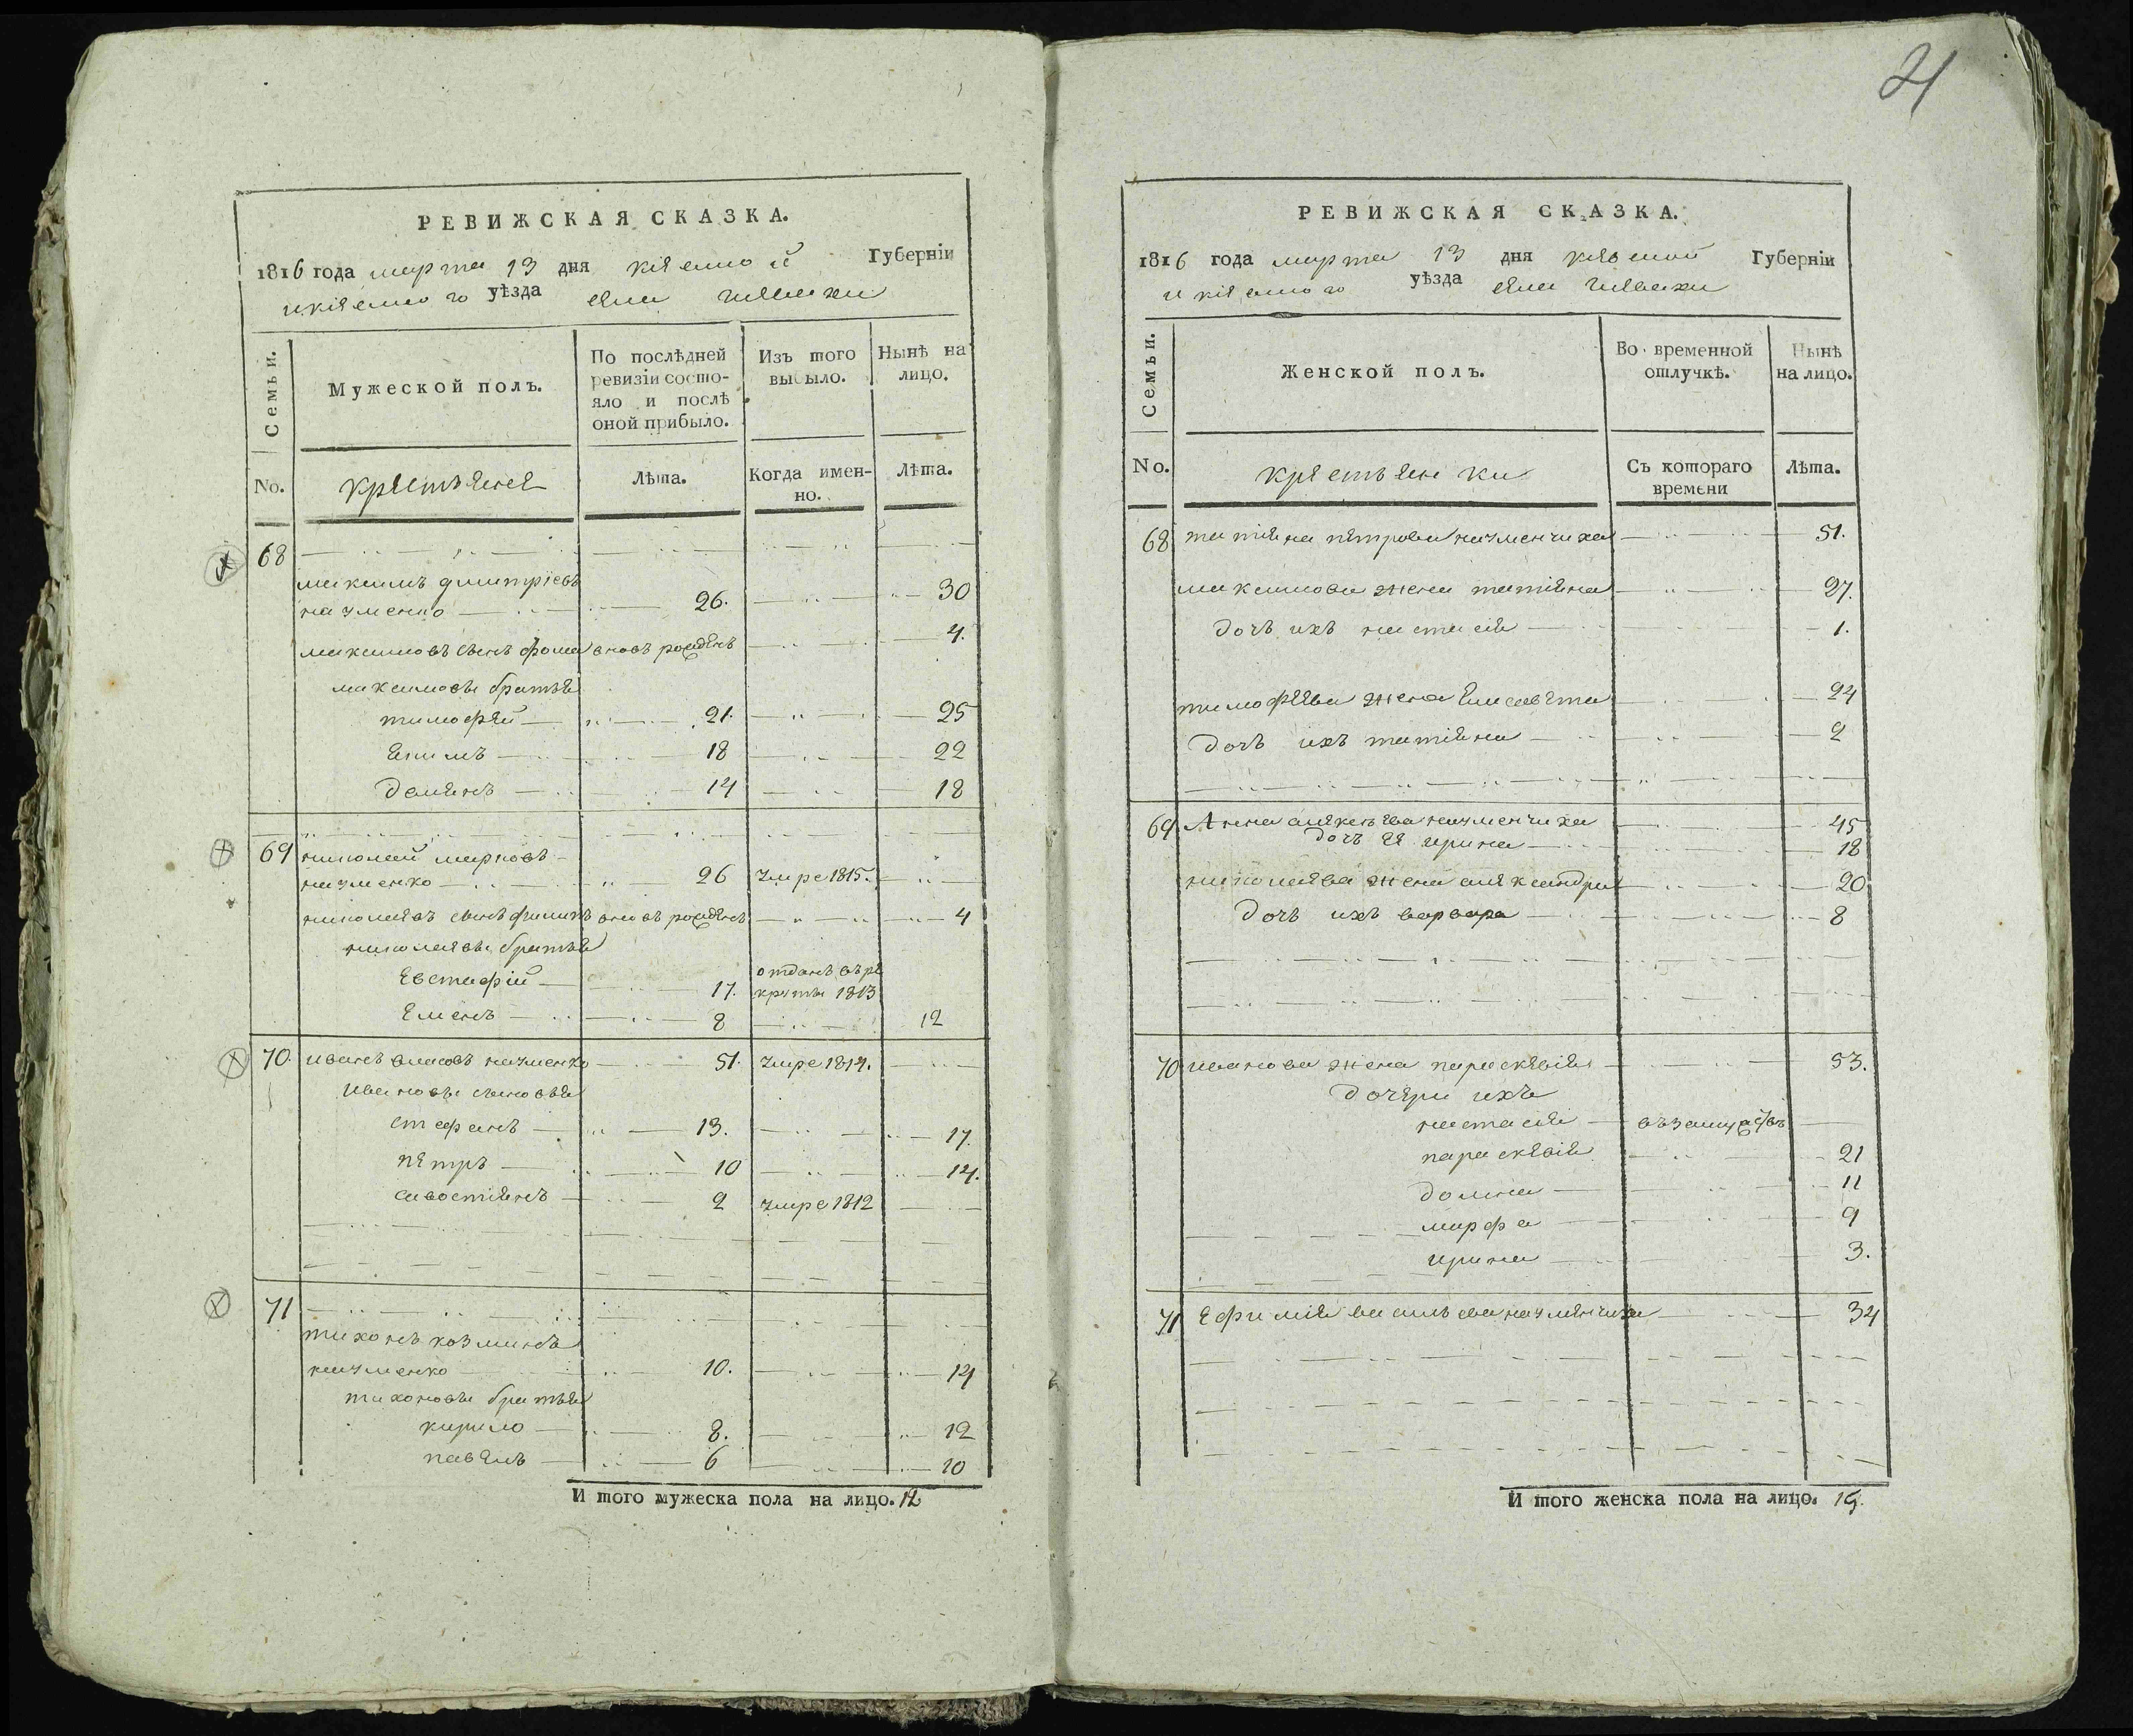 21
РЕВИЖСКАЯ СКАЗКА.
1816 года марта 13 дня кіевской Губерніи
и кіевского уѣзда села
Семьи.
Мужеской полъ.
По послѣдней ревизіи состояло и послѣ оной прибыло.
Изъ того выбыло.
Нынѣ на лицо.
No.
крестьяне
Лѣта.
Когда именно.
Лѣта.
68
максимъ дмитріевъ
науменко 26. 30
максимовъ сынъ фома вновь рожденъ 4.
максимовы братья
тимофей 21. 25
Екимъ 18 22
Демянъ 14 18
69 николай марковъ
науменко 26 умре 1815.
николаевъ сынъ филипъ вновь рожденъ 4
николаевы братья
Евстафій 17. отданъ въ рекруты 1813
Еменъ 8 12
70. иванъ власовъ науменко 51. умре 1814.
ивановы сыновья
стефанъ 13. 17.
петръ 10 14.
савостіянъ 2 умре 1812
71
тихонъ козминъ
науменко 10. 14
тихоновы братья
кирило 8. 12
павелъ 6 10
И того мужеска пола на лицо. 12
РЕВИЖСКАЯ СКАЗКА.
1816 года марта 13 дня кіевской Губерніи
и кіевского уѣзда села
Семьи.
Женской полъ.
Во временной отлучкѣ.
Нынѣ на лицо.
No.
крестьянки
Съ котораго времени
Лѣта.
68 татіяна петрова науменчиха 51.
максимова жена татіяна 27.
дочь ихъ настасія 1.
тимофеева жена Елисавета 24
дочь ихъ татіяна 2
69 Анна алексѣева науменчиха 45
дочь ея ирина 18
николаева жена александра 20
дочь ихъ варвара 8
70 иванова жена параскевія 53.
дочери ихъ
настасія въ замужствѣ
параскевія 21
домна 11
марфа 9
ирина 3.
71 Ефимія васильева науменчиха 34
И того женска пола на лицо. 15.